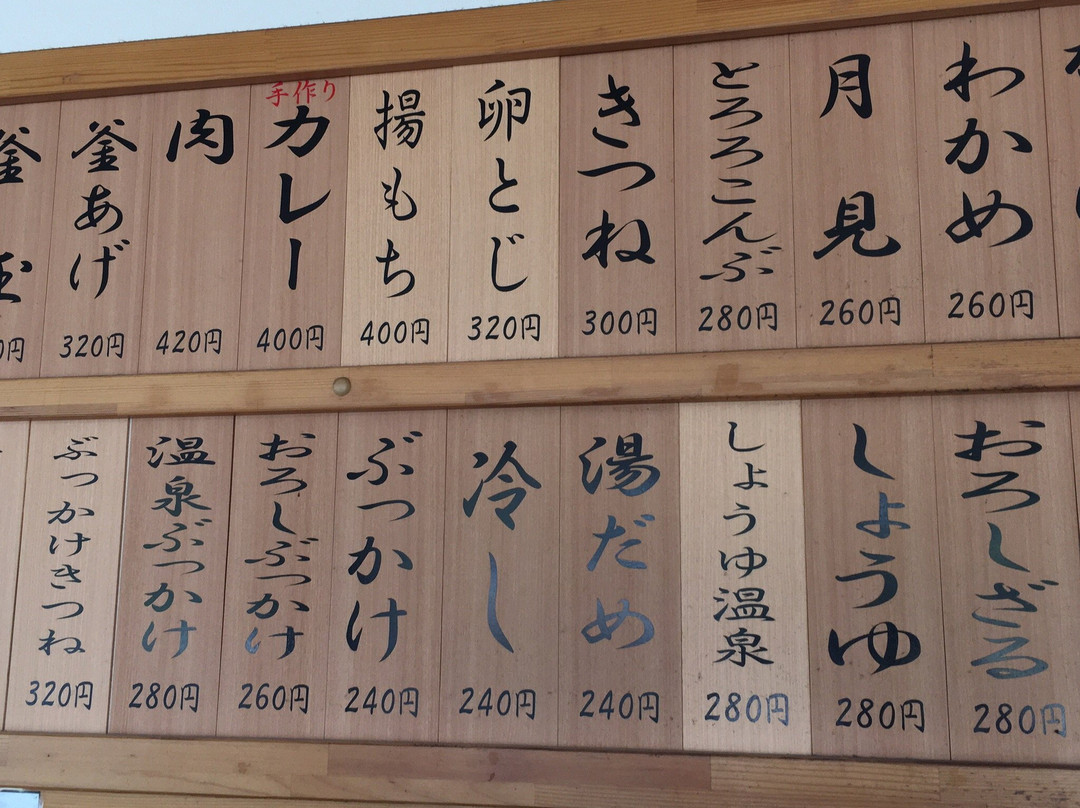 わかめ
260円
月見
260円
とろろこんぶ
280円
きつね
300円
卵とじ
320円
揚もち
400円
手作り
カレー
400円
肉
420円
釜あげ
320円
釜玉
おろしざる
280円
しょうゆ
280円
しょうゆ温泉
280円
湯だめ
240円
冷し
240円
ぶっかけ
240円
おろしぶっかけ
260円
温泉ぶっかけ
280円
ぶっかけきつね
320円